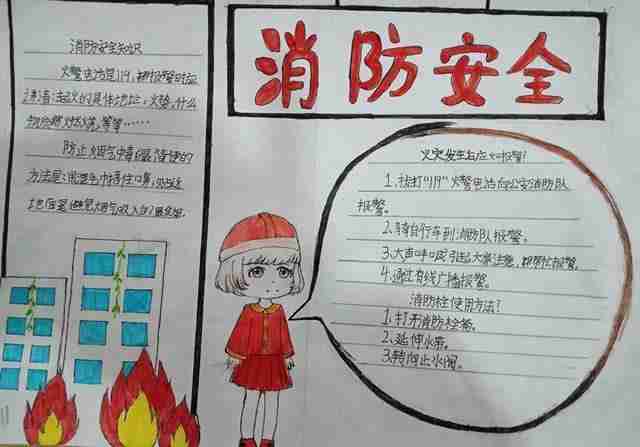 消防安全
消防安全知识
火警电话是119,
火势,什么
物燃烧,等等……
防止烟气中毒最简便的
方法是:用湿毛巾捂住口鼻,
火灾发生后应如何报警?
1.拨打“119”火警电话向公安消防队
报警。
2.骑自行车到消防队报警。
3.大声呼喊引起大家注意,帮忙报警。
4.通过有线广播报警。
消防栓使用方法?
1.打开消防栓箱。
2.延伸水带。
3.转向止水阀。